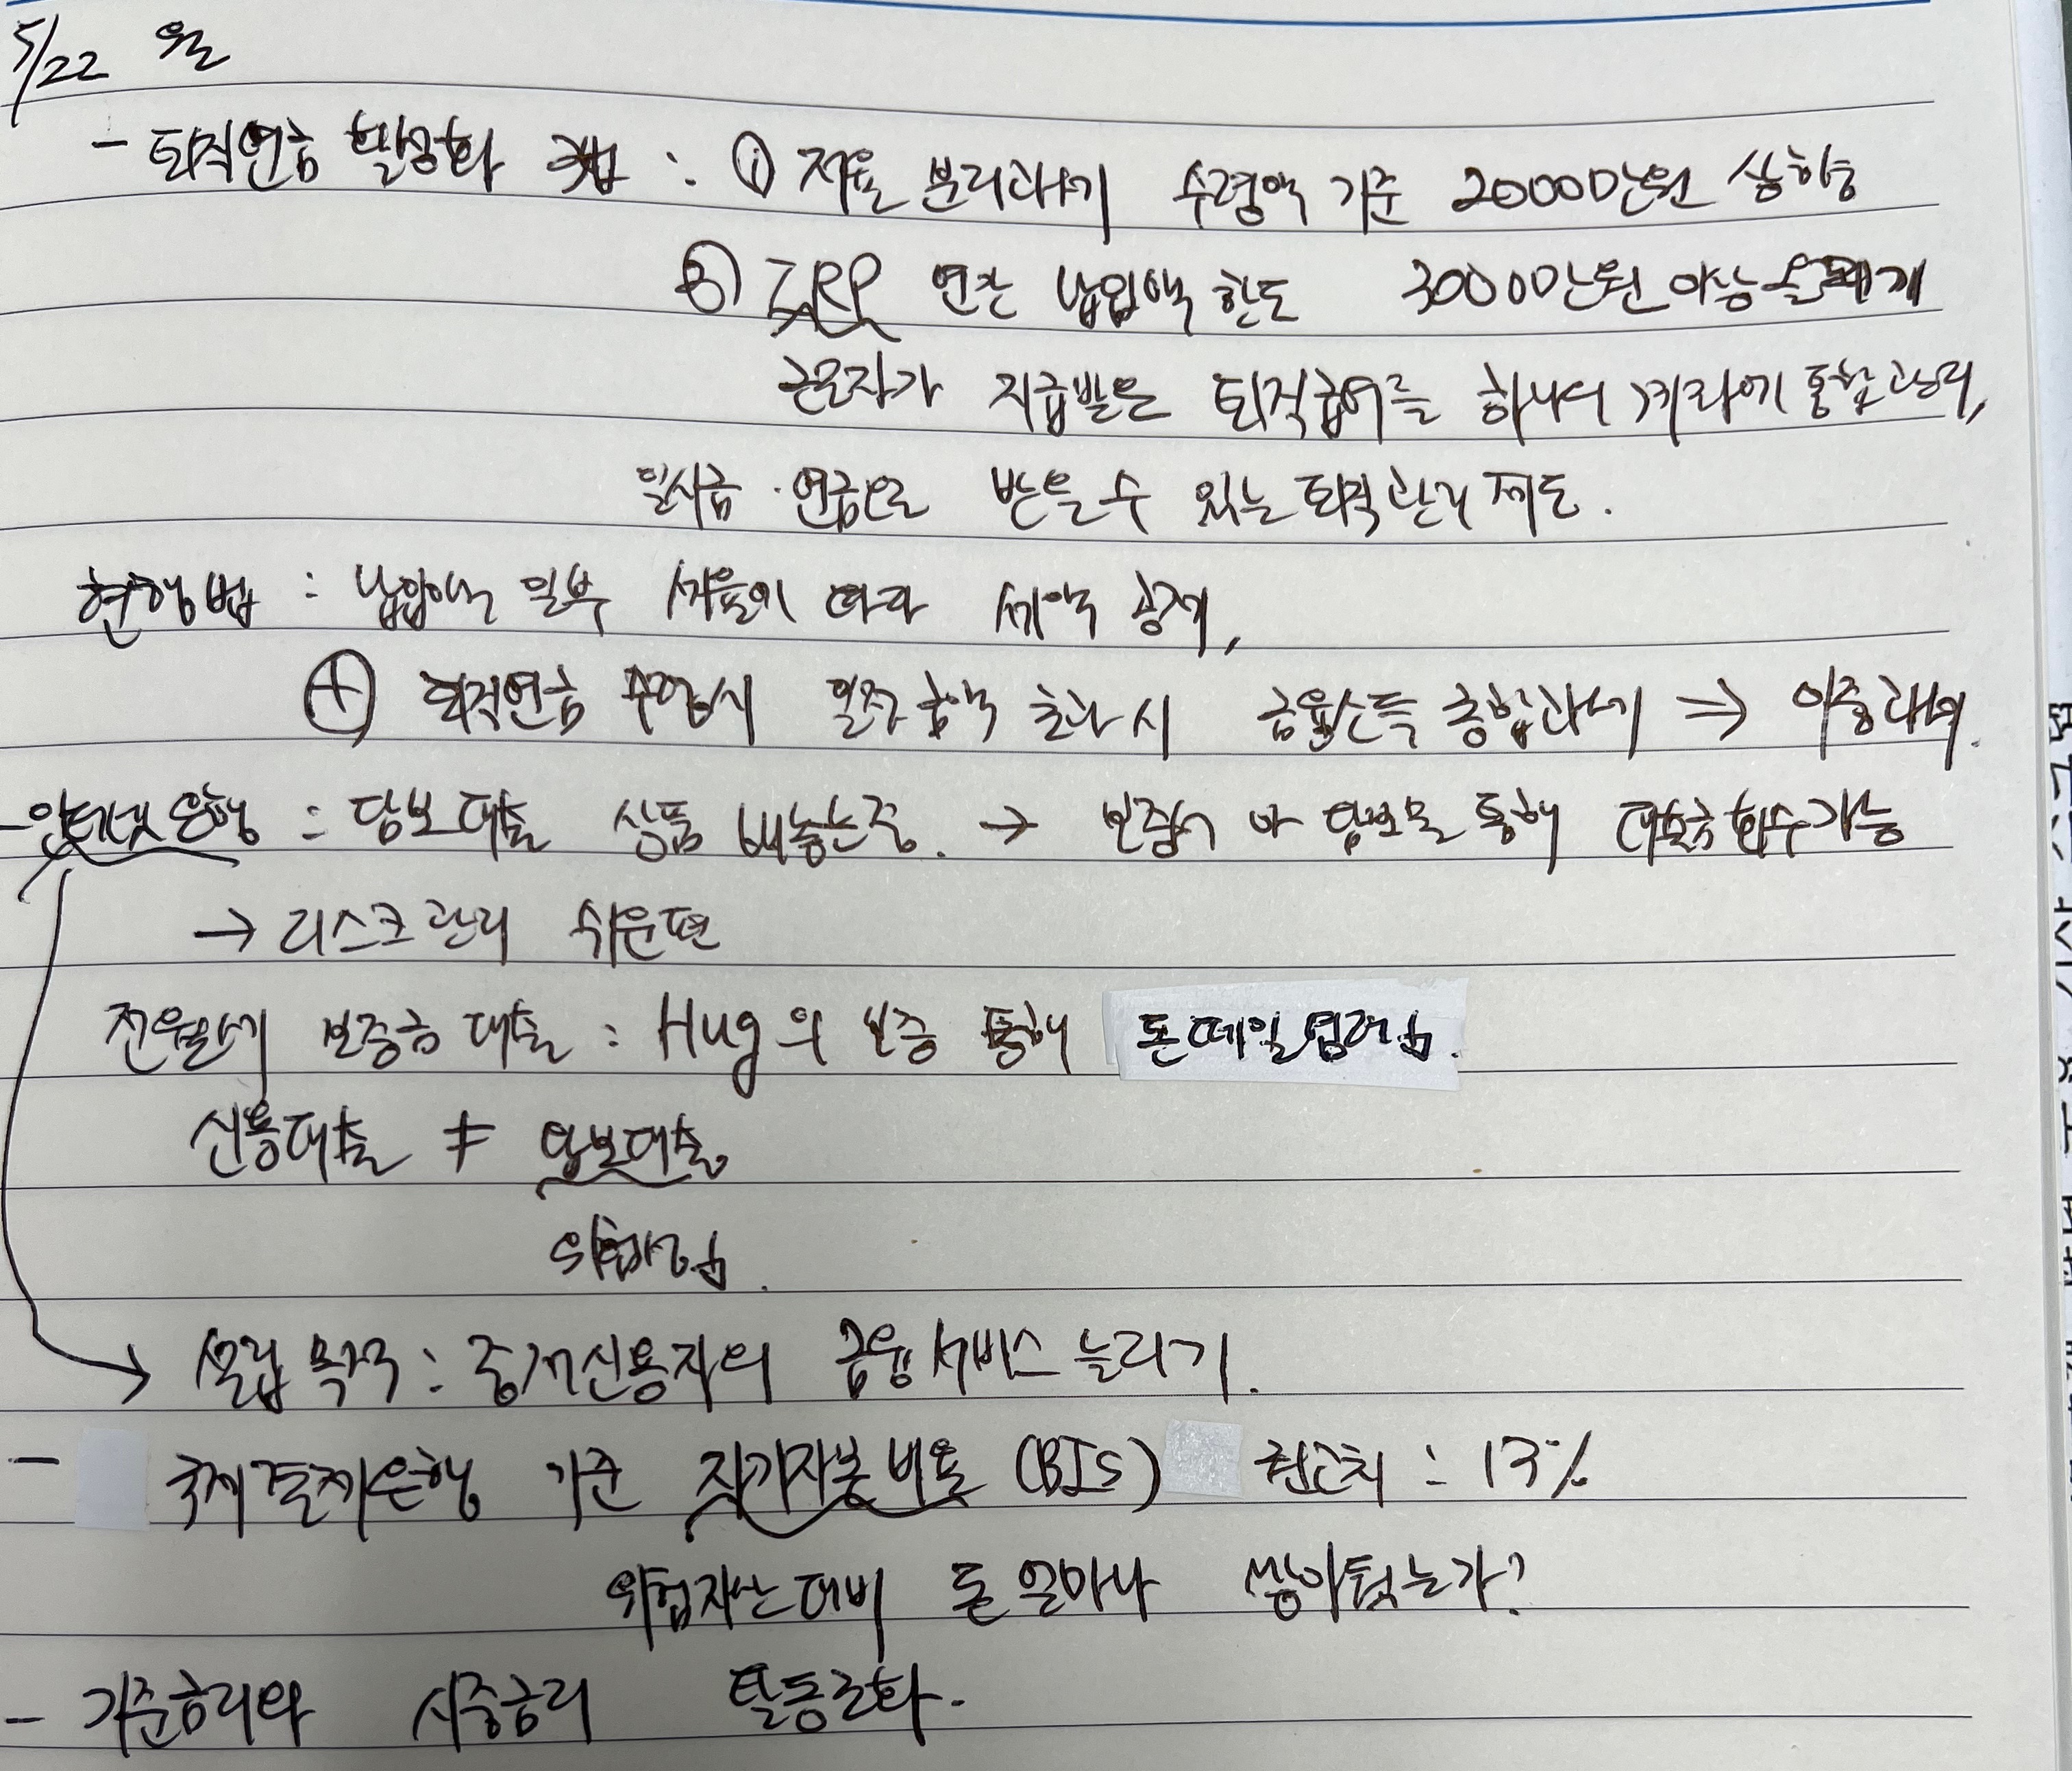 5/22 월
- 퇴직연금 활성화 법 : ① 저율 분리과세 수령액 기준 20000만원 상향
③ IRP 연간 납입액 한도 30000만원
근로자가 지급받은 퇴직급여를 하나의 계좌에 통합관리,
일시금·연금으로 받을 수 있는 퇴직관리 제도.
현행법 : 납입액 일부 세율에 따라 세액 공제,
+ 퇴직연금 수령시 일정금액 초과시 금융소득 종합과세 ⇒ 이중과세.
- 인터넷은행 : 담보대출 상품 내놓는중. → 보증서 나 담보물 통해 대출금 회수가능
→ 리스크관리 쉬운편
전월세 보증금 대출 : Hug의 보증 통해 돈떼일염려 ↓.
신용대출 ≠ 담보대출
위험성↓.
→ 설립 목적 : 중저신용자의 금융서비스 늘리기.
- 국제결제은행 기준 자기자본비율 (BIS) 권고치 : 13%
위험자산대비 돈 얼마나 쌓아뒀는가?
- 기준금리와 시중금리 탈동조화.